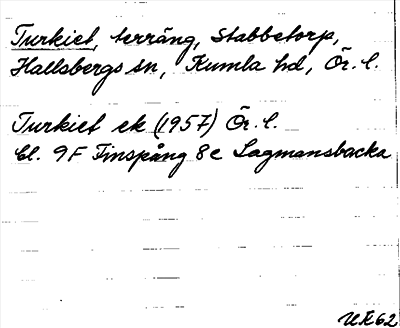 Turkiet, terräng, Stabbetorp,
Hallsbergs sn, Kumla hd, Ör. l.
Turkiet ek (1957) Ör. l.
bl. 9F Finspång 8e Lagmansbacka
UK62